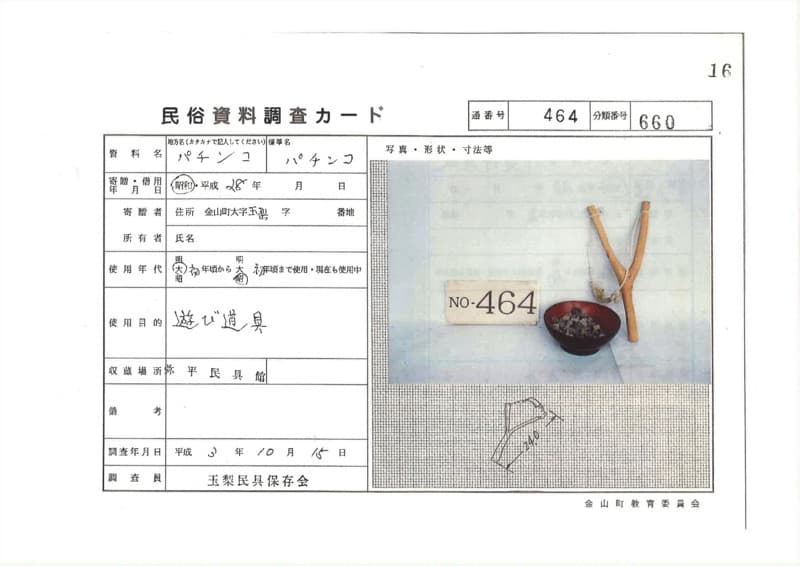 16
民俗資料調査カード
通番号 464 分類番号 660
資料名 地方名(カタカナで記入してください) パチンコ 標準名 パチンコ
写真・形状・寸法等
寄贈・借用年月日 昭和・平成 28年 月 日
寄贈者 住所 金山町大字玉梨 字 番地
所有者 氏名
使用年代 明大昭 初年頃から 明大昭 初年頃まで使用・現在も使用中
NO-464
使用目的 遊び道具
収蔵場所 弥平民具館
備考
24.0
調査年月日 平成 3 年 10 月 15 日
調査員 玉梨民具保存会
金山町教育委員会